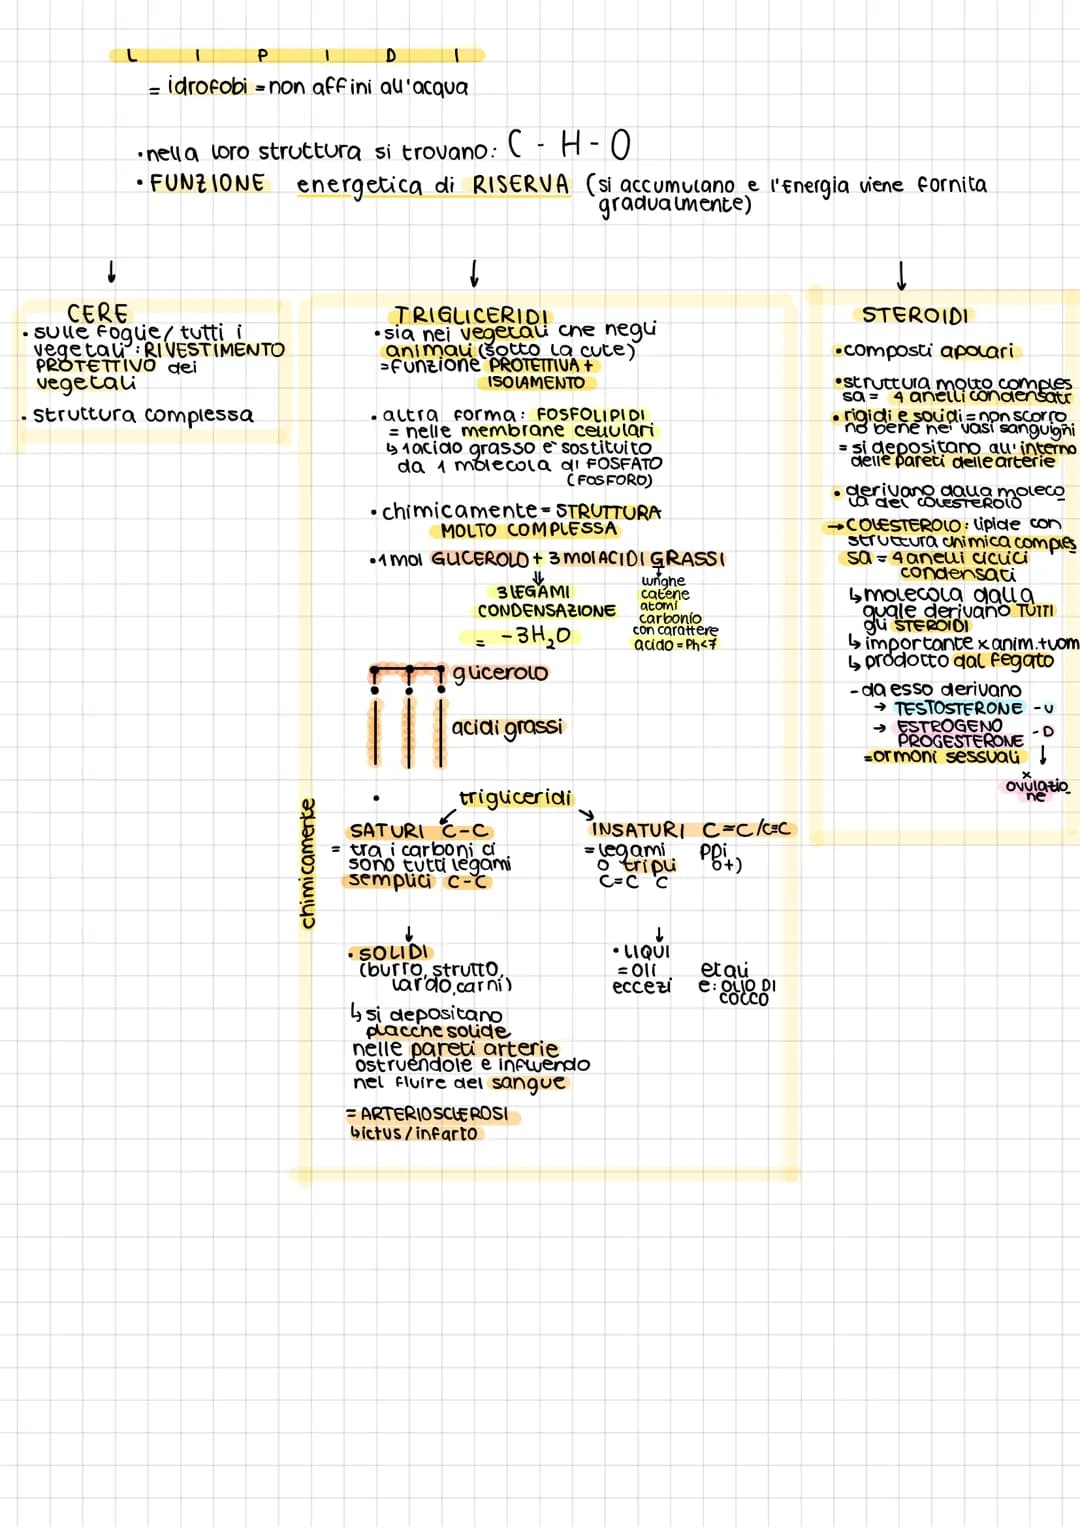 L I P I D I
= idrofobi = non affini all'acqua
•nella loro struttura si trovano: C - H - O
• FUNZIONE energetica di RISERVA (si accumulano e l'Energia viene fornita
gradualmente)
CERE
• sulle foglie/ tutti i
vegetali : RIVESTIMENTO
PROTETTIVO dei
vegetali
• struttura complessa
TRIGLICERIDI
• sia nei vegetali che negli
animali (sotto la cute)
= funzione PROTETTIVA +
ISOLAMENTO
• altra forma: FOSFOLIPIDI
= nelle membrane cellulari
↳ 1 acido grasso e' sostituito
da 1 molecola di FOSFATO
(FOSFORO)
• chimicamente = STRUTTURA
MOLTO COMPLESSA
• 1 mol GLICEROLO + 3 mol ACIDI GRASSI
3 LEGAMI
CONDENSAZIONE
= -3H₂O
lunghe
catene
atomi
carbonio
con carattere
acido = Ph<7
glicerolo
acidi grassi
chimicamente
• trigliceridi
SATURI C-C
= tra i carboni ci
sono tutti legami
semplici C-C
INSATURI C=C/C≡C
= legami ppi
o tripli o+)
C=C C
↓
• SOLIDI
(burro, strutto,
lardo, carni)
↳ si depositano
placche solide
nelle pareti arterie
ostruendole e influendo
nel fluire del sangue
= ARTERIOSCLEROSI
↳ ictus/infarto
↓
• LIQUI
= oli etali
eccezi e: OLIO DI
COCCO
STEROIDI
• composti apolari
• struttura molto comples
sa = 4 anelli condensati
• rigidi e solidi = non scorro
no bene nei vasi sanguigni
= si depositano all'interno
delle pareti delle arterie
• derivano dalla moleco
la del COLESTEROLO
→ COLESTEROLO: lipide con
struttura chimica comples
sa = 4 anelli ciclici
condensati
↳ molecola dalla
quale derivano TUTTI
gli STEROIDI
↳ importante x anim.+uom
↳ prodotto dal fegato
- da esso derivano
→ TESTOSTERONE - U
→ ESTROGENO
PROGESTERONE - D
= ormoni sessuali ↓
x
ovulazio_
ne